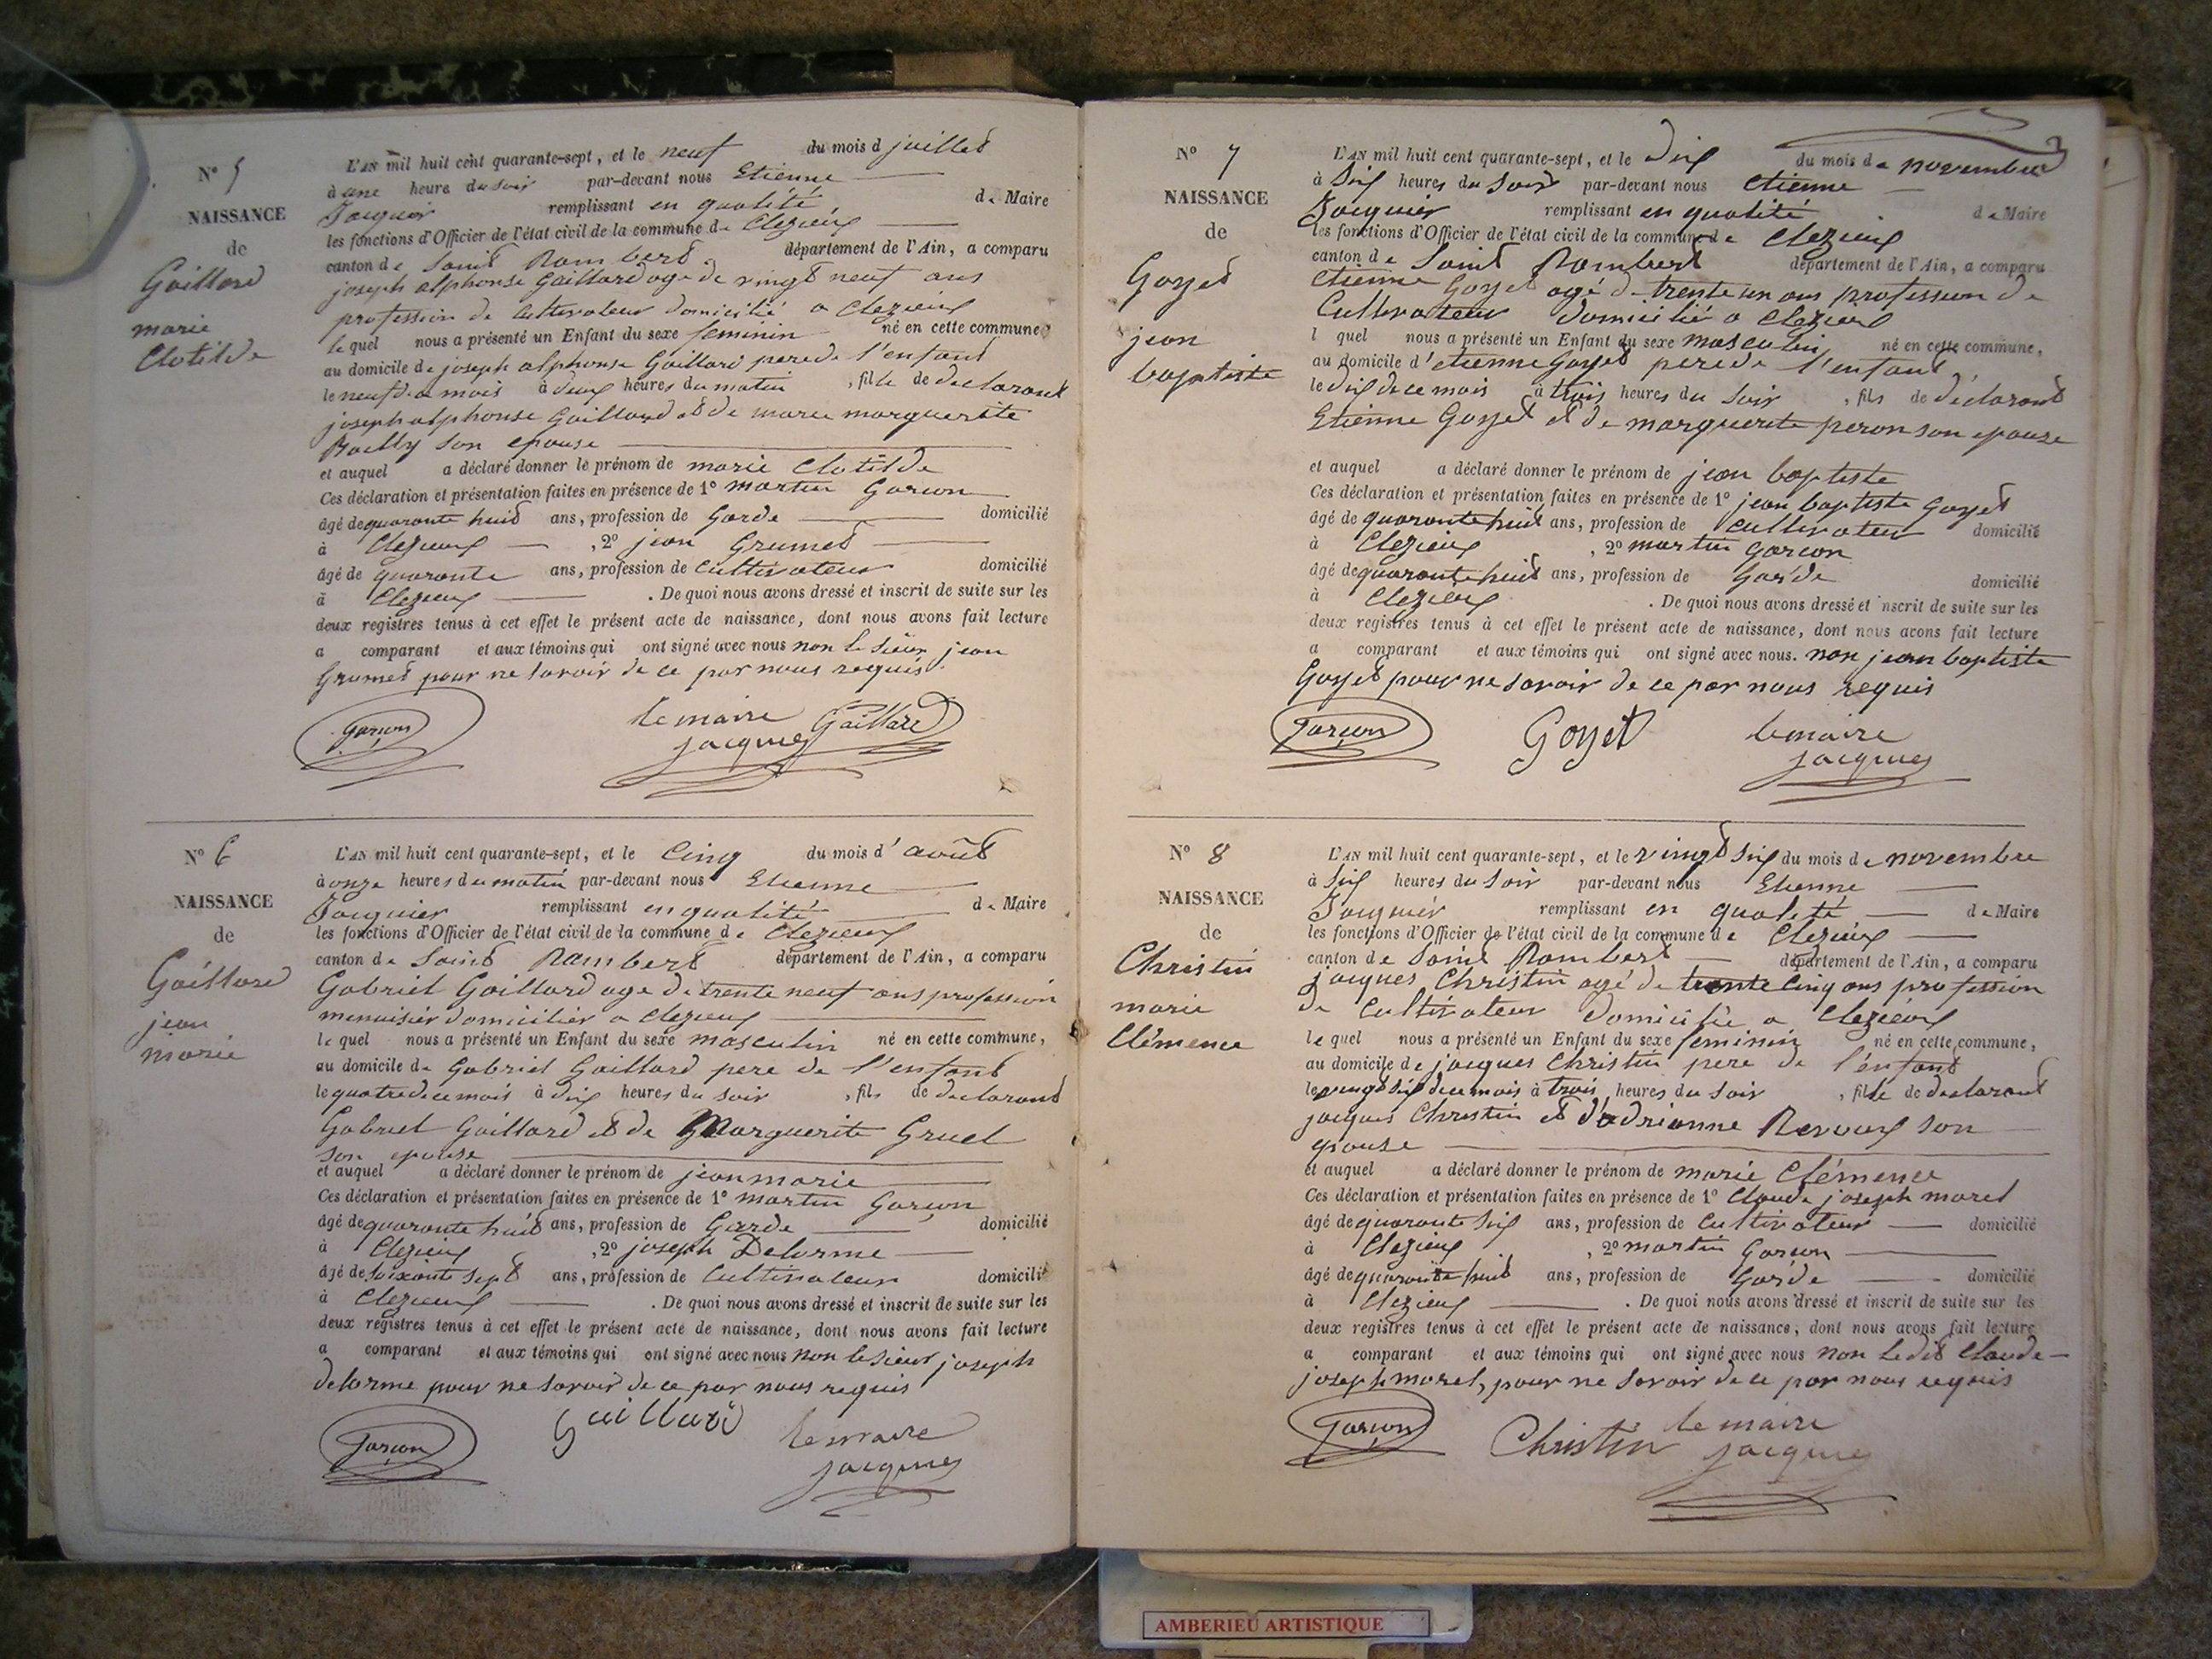 N° 5
NAISSANCE
de
Gaillard
marie
Clotilde
L'AN mil huit cent quarante-sept, et le neuf du mois d juillet
à une heure du soir par-devant nous Etienne
Jacquier remplissant en qualité de Maire
les fonctions d'Officier de l'état civil de la commune de Clezieux
canton de Saint Rambert département de l'Ain, a comparu
joseph alphonse Gaillard age de vingt neuf ans
profession de Cultivateur domicilié a Clezieux
lequel nous a présenté un Enfant du sexe feminin né en cette commune,
au domicile de joseph alphonse Gaillard pere de l'enfant
le neuf de ce mois à deux heures du matin , fille de declarant
joseph alphonse Gaillard et de marie marguerite
Bailly son epouse
et auquel a déclaré donner le prénom de marie Clotilde
Ces déclaration et présentation faites en présence de 1° martin Garçon
âgé de quarante huit ans, profession de Garde domicilié
à Clezieux , 2° jean Grumet
âgé de quarante ans, profession de Cultivateur domicilié
à Clezieux . De quoi nous avons dressé et inscrit de suite sur les
deux registres tenus à cet effet le présent acte de naissance, dont nous avons fait lecture
a comparant et aux témoins qui ont signé avec nous non le Sieur jean
Grumet pour ne savoir de ce par nous requis.
Garçon le maire Gaillard
jacquier
N° 6
NAISSANCE
de
Gaillard
jean
marie
L'AN mil huit cent quarante-sept, et le Cinq du mois d'août
à onze heures du matin par-devant nous Etienne
Jacquier remplissant en qualité de Maire
les fonctions d'Officier de l'état civil de la commune de Clezieux
canton de Saint Rambert département de l'Ain, a comparu
Gabriel Gaillard age de trente neuf ans profession
menuisier domicilier a Clezieux
lequel nous a présenté un Enfant du sexe masculin né en cette commune,
au domicile de Gabriel Gaillard pere de l'enfant
le quatre de ce mois à dix heures du soir , fils de declarant
Gabriel Gaillard et de Marguerite Gruel
son epouse
et auquel a déclaré donner le prénom de jean marie
Ces déclaration et présentation faites en présence de 1° martin Garçon
âgé de quarante huit ans, profession de Garde domicilié
à Clezieux , 2° joseph Delorme
âgé de soixante sept ans, profession de Cultivateur domicilié
à Clezieux . De quoi nous avons dressé et inscrit de suite sur les
deux registres tenus à cet effet le présent acte de naissance, dont nous avons fait lecture
a comparant et aux témoins qui ont signé avec nous non le sieur joseph
delorme pour ne savoir de ce par nous requis
Garçon Gaillard le maire
jacquier
N° 7
NAISSANCE
de
Goyet
jean
baptiste
L'AN mil huit cent quarante-sept, et le dix du mois de novembre
à Six heures du Soir par-devant nous Etienne
Jacquier remplissant en qualité de Maire
les fonctions d'Officier de l'état civil de la commune de Clezieux
canton de Saint Rambert département de l'Ain, a comparu
Etienne Goyet agé de trente un ans profession de
Cultivateur domicilié a Clezieux
l quel nous a présenté un Enfant du sexe masculin né en cette commune,
au domicile d'etienne Goyet pere de l'enfant
le dix de ce mois à trois heures du Soir , fils de déclarant
Etienne Goyet et de marguerite peron son epouse
et auquel a déclaré donner le prénom de jean baptiste
Ces déclaration et présentation faites en présence de 1° jean baptiste Goyet
âgé de quarante huit ans, profession de Cultivateur domicilié
à Clezieux , 2° martin garcon
âgé de quarante huit ans, profession de Garde domicilié
à Clezieux . De quoi nous avons dressé et inscrit de suite sur les
deux registres tenus à cet effet le présent acte de naissance, dont nous avons fait lecture
a comparant et aux témoins qui ont signé avec nous. non jean baptiste
Goyet pour ne savoir de ce par nous requis
Garçon Goyet le maire
jacquier
N° 8
NAISSANCE
de
Christin
marie
Clémence
L'AN mil huit cent quarante-sept, et le vingt Six du mois de novembre
à Six heures du Soir par-devant nous Etienne
Jacquier remplissant en qualité de Maire
les fonctions d'Officier de l'état civil de la commune de Clezieux
canton de Saint Rambert département de l'Ain, a comparu
jacques Christin agé de trente Cinq ans profession
de Cultivateur domicilié a Clezieux
lequel nous a présenté un Enfant du sexe feminin né en cette commune,
au domicile de jacques Christin pere de l'enfant
le vingt Six de ce mois à trois heures du Soir , fille de declarant
jacques Christin et d'adrianne son
epouse
et auquel a déclaré donner le prénom de marie Clémence
Ces déclaration et présentation faites en présence de 1° Claude joseph morel
âgé de quarante Six ans, profession de Cultivateur domicilié
à Clezieux , 2° martin Garcon
âgé de quarante huit ans, profession de Garde domicilié
à Clezieux . De quoi nous avons dressé et inscrit de suite sur les
deux registres tenus à cet effet le présent acte de naissance, dont nous avons fait lecture
a comparant et aux témoins qui ont signé avec nous non le dit Claude
joseph morel, pour ne Savoir de ce par nous requis
Garçon Christin le maire
jacquier
AMBERIEU ARTISTIQUE